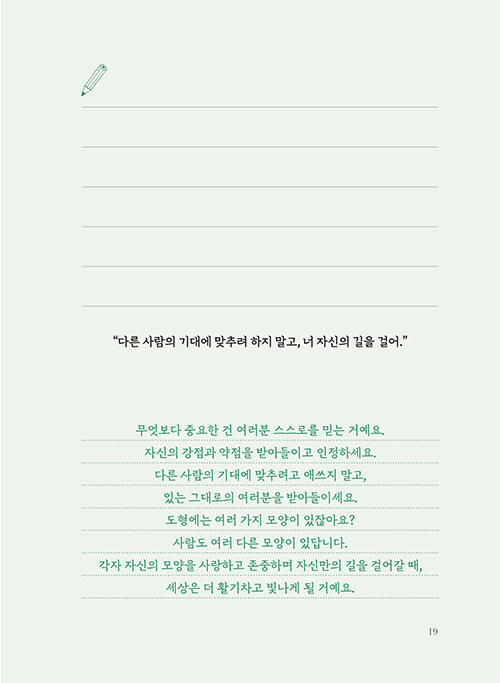 “다른 사람의 기대에 맞추려 하지 말고, 너 자신의 길을 걸어.”
무엇보다 중요한 건 여러분 스스로를 믿는 거예요.
자신의 강점과 약점을 받아들이고 인정하세요.
다른 사람의 기대에 맞추려고 애쓰지 말고,
있는 그대로의 여러분을 받아들이세요.
도형에는 여러 가지 모양이 있잖아요?
사람도 여러 다른 모양이 있답니다.
각자 자신의 모양을 사랑하고 존중하며 자신만의 길을 걸어갈 때,
세상은 더 활기차고 빛나게 될 거예요.
19